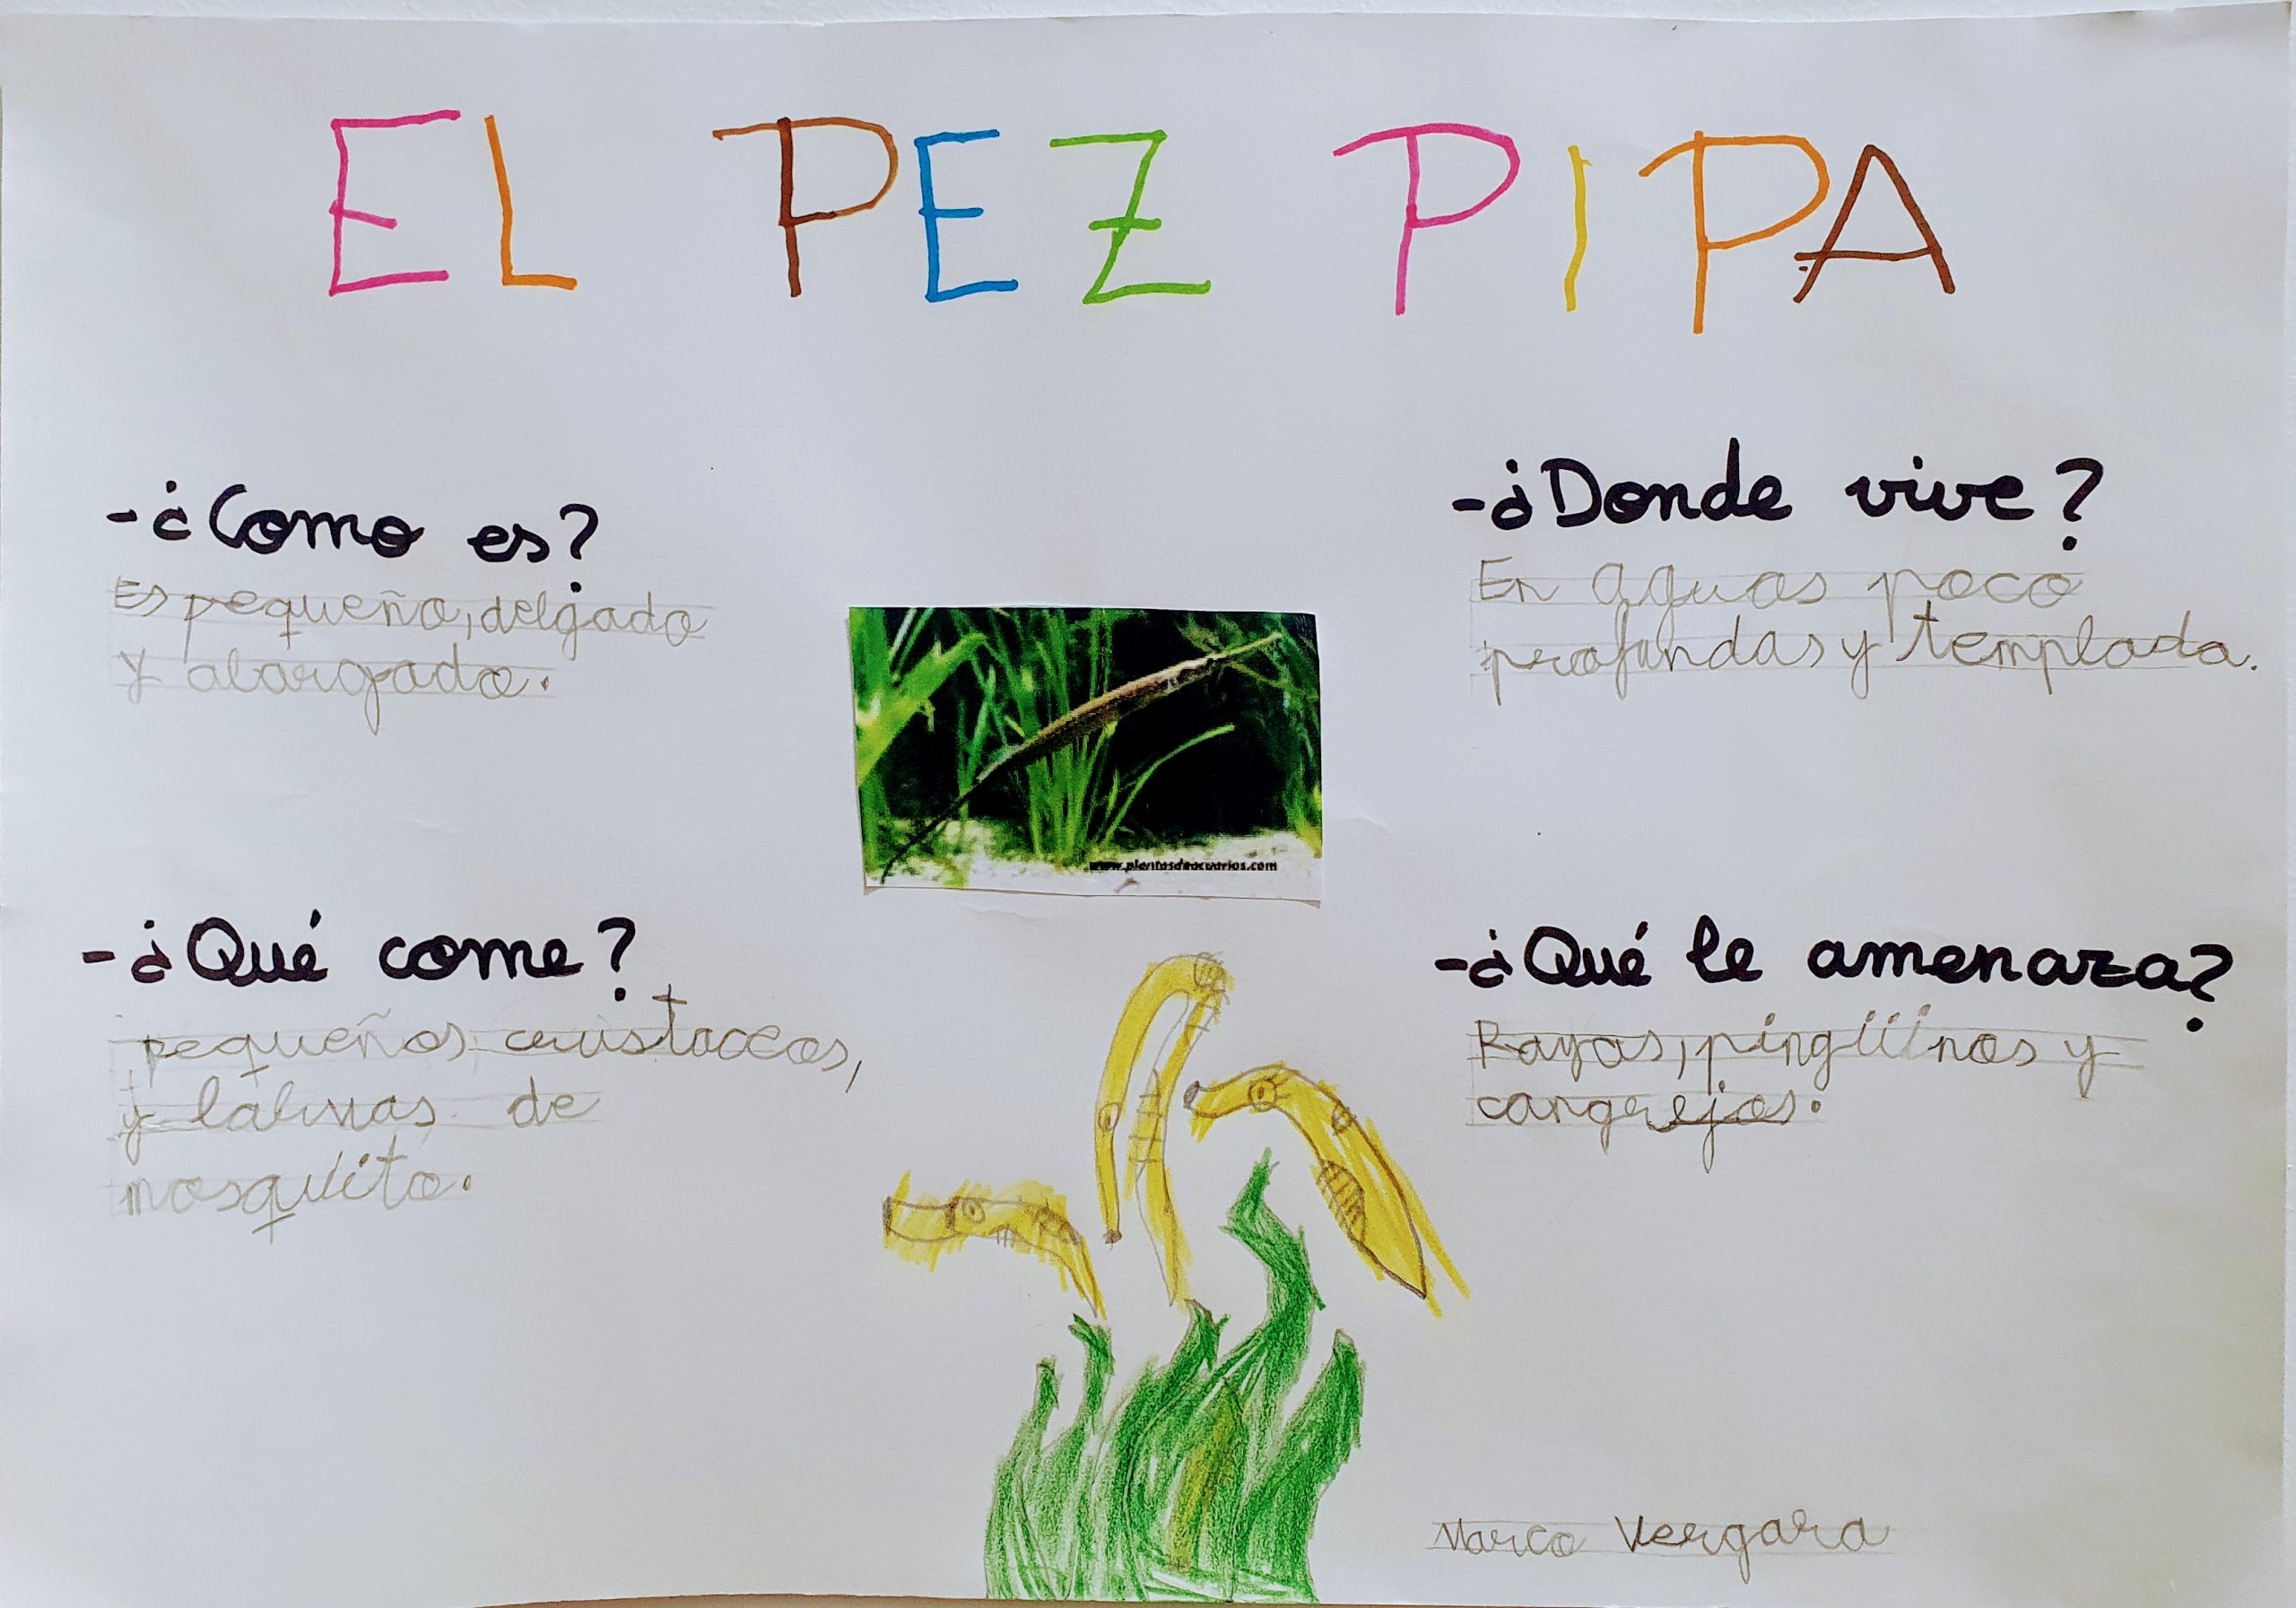 EL PEZ PIPA
-¿Como es?
Es pequeño, delgado
y alargado.
-¿Donde vive?
En aguas poco
profundas y templada.
www.plantasdeacuarios.com
-¿Qué come?
pequeños crustaceos,
y labruas de
mosquito.
-¿Qué le amenaza?
Rayas, pingüinos y
cangrejos.
Marco Vergara